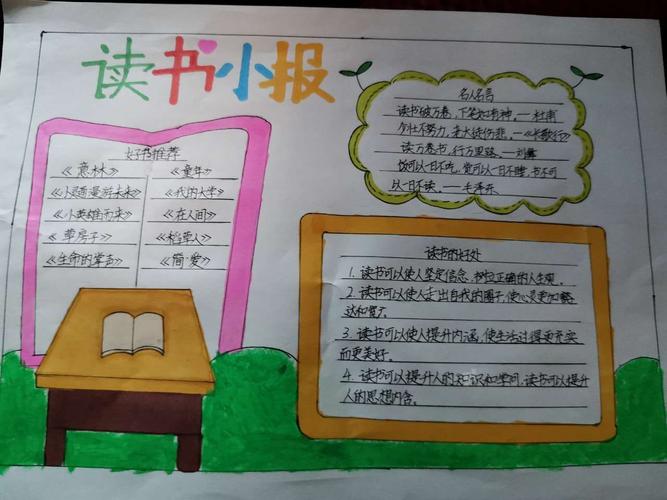 读书小报
好书推荐
《意林》
《小灵通漫游未来》
《小英雄雨来》
《草房子》
《生命的掌击》
《童年》
《我的大学》
《在人间》
《稻草人》
《简·爱》
名人名言
读书破万卷,下笔如有神,一杜甫
少壮不努力,老大徒伤悲,一《长歌行》
读万卷书,行万里路,一刘彝
饭可以一日不吃,觉可以一日不睡,书不可
以一日不读,一毛泽东
读书的好处
1. 读书可以使人坚定信念,树立正确的人生观。
2. 读书可以使人走出自我的圈子,使心灵更加豁
达和宽广
3. 读书可以使人提升内涵,使生活过得更充实
而更美好。
4. 读书可以提升人的知识和学问,读书可以提升
人的思想内含。